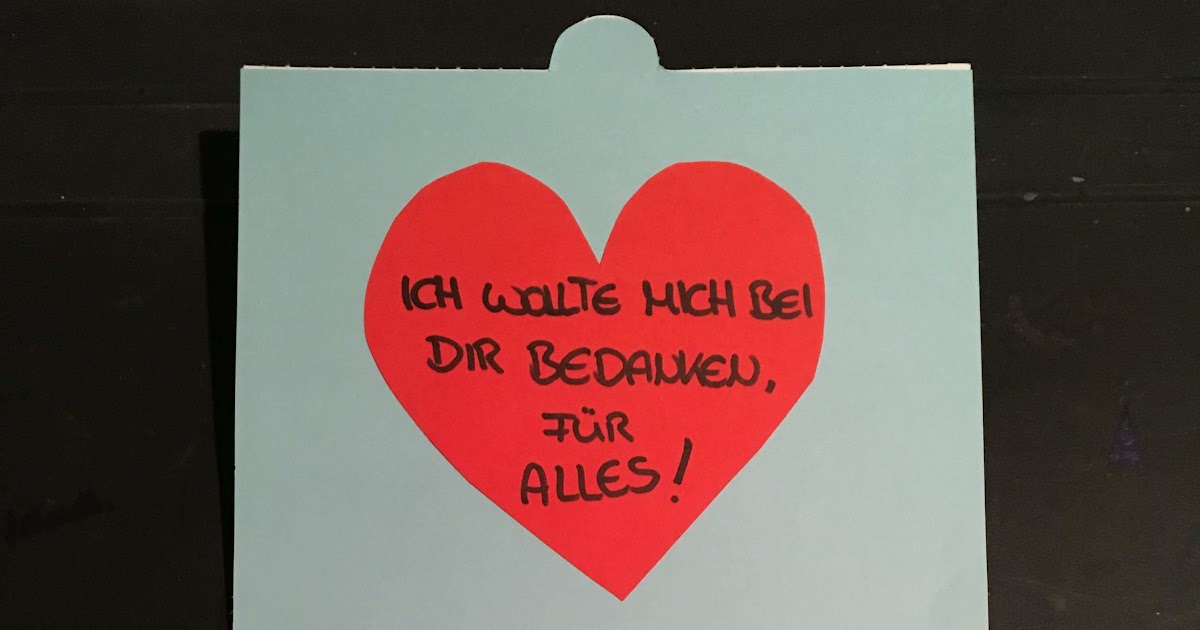 ICH WOLLTE MICH BEI
DIR BEDANKEN,
FÜR
ALLES!